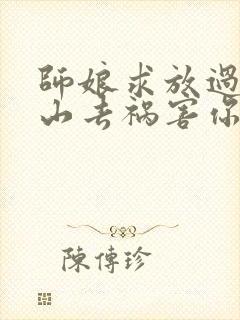 師娘求放過
山去禍害你
陳傳珍